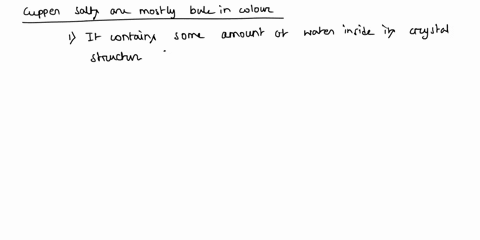 Cupper salts are mostly bule in colour
1) It contains some amount of water inside its crystal
structur